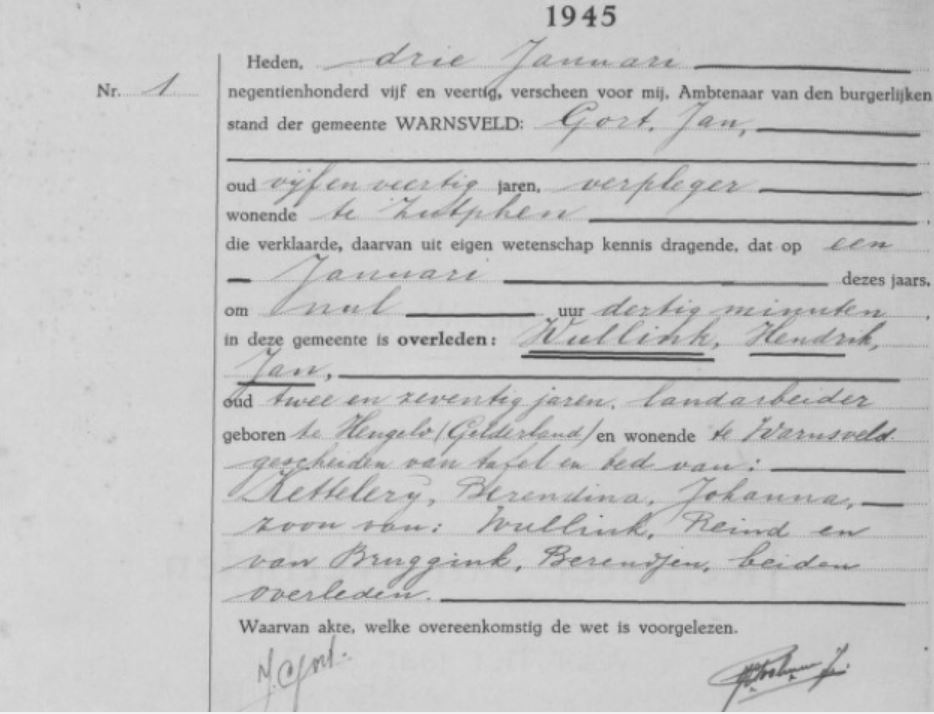 1945
Heden, drie Januari
Nr. 1
negentienhonderd vijf en veertig, verscheen voor mij, Ambtenaar van den burgerlijken
stand der gemeente WARNSVELD: Gort, Jan,
oud vijf en veertig jaren, verpleger
wonende te Zutphen,
die verklaarde, daarvan uit eigen wetenschap kennis dragende, dat op een
Januari dezes jaars,
om nul uur dertig minuten,
in deze gemeente is overleden: Wullink, Hendrik,
Jan,
oud twee en zeventig jaren, landarbeider
geboren te Hengelo (Gelderland) en wonende te Warnsveld
gescheiden van tafel en bed van:
Berendina, Johanna,
zoon van: Wullink, Reind en
van Bruggink, Berendjen, beiden
overleden.
Waarvan akte, welke overeenkomstig de wet is voorgelezen.
J. Gort.